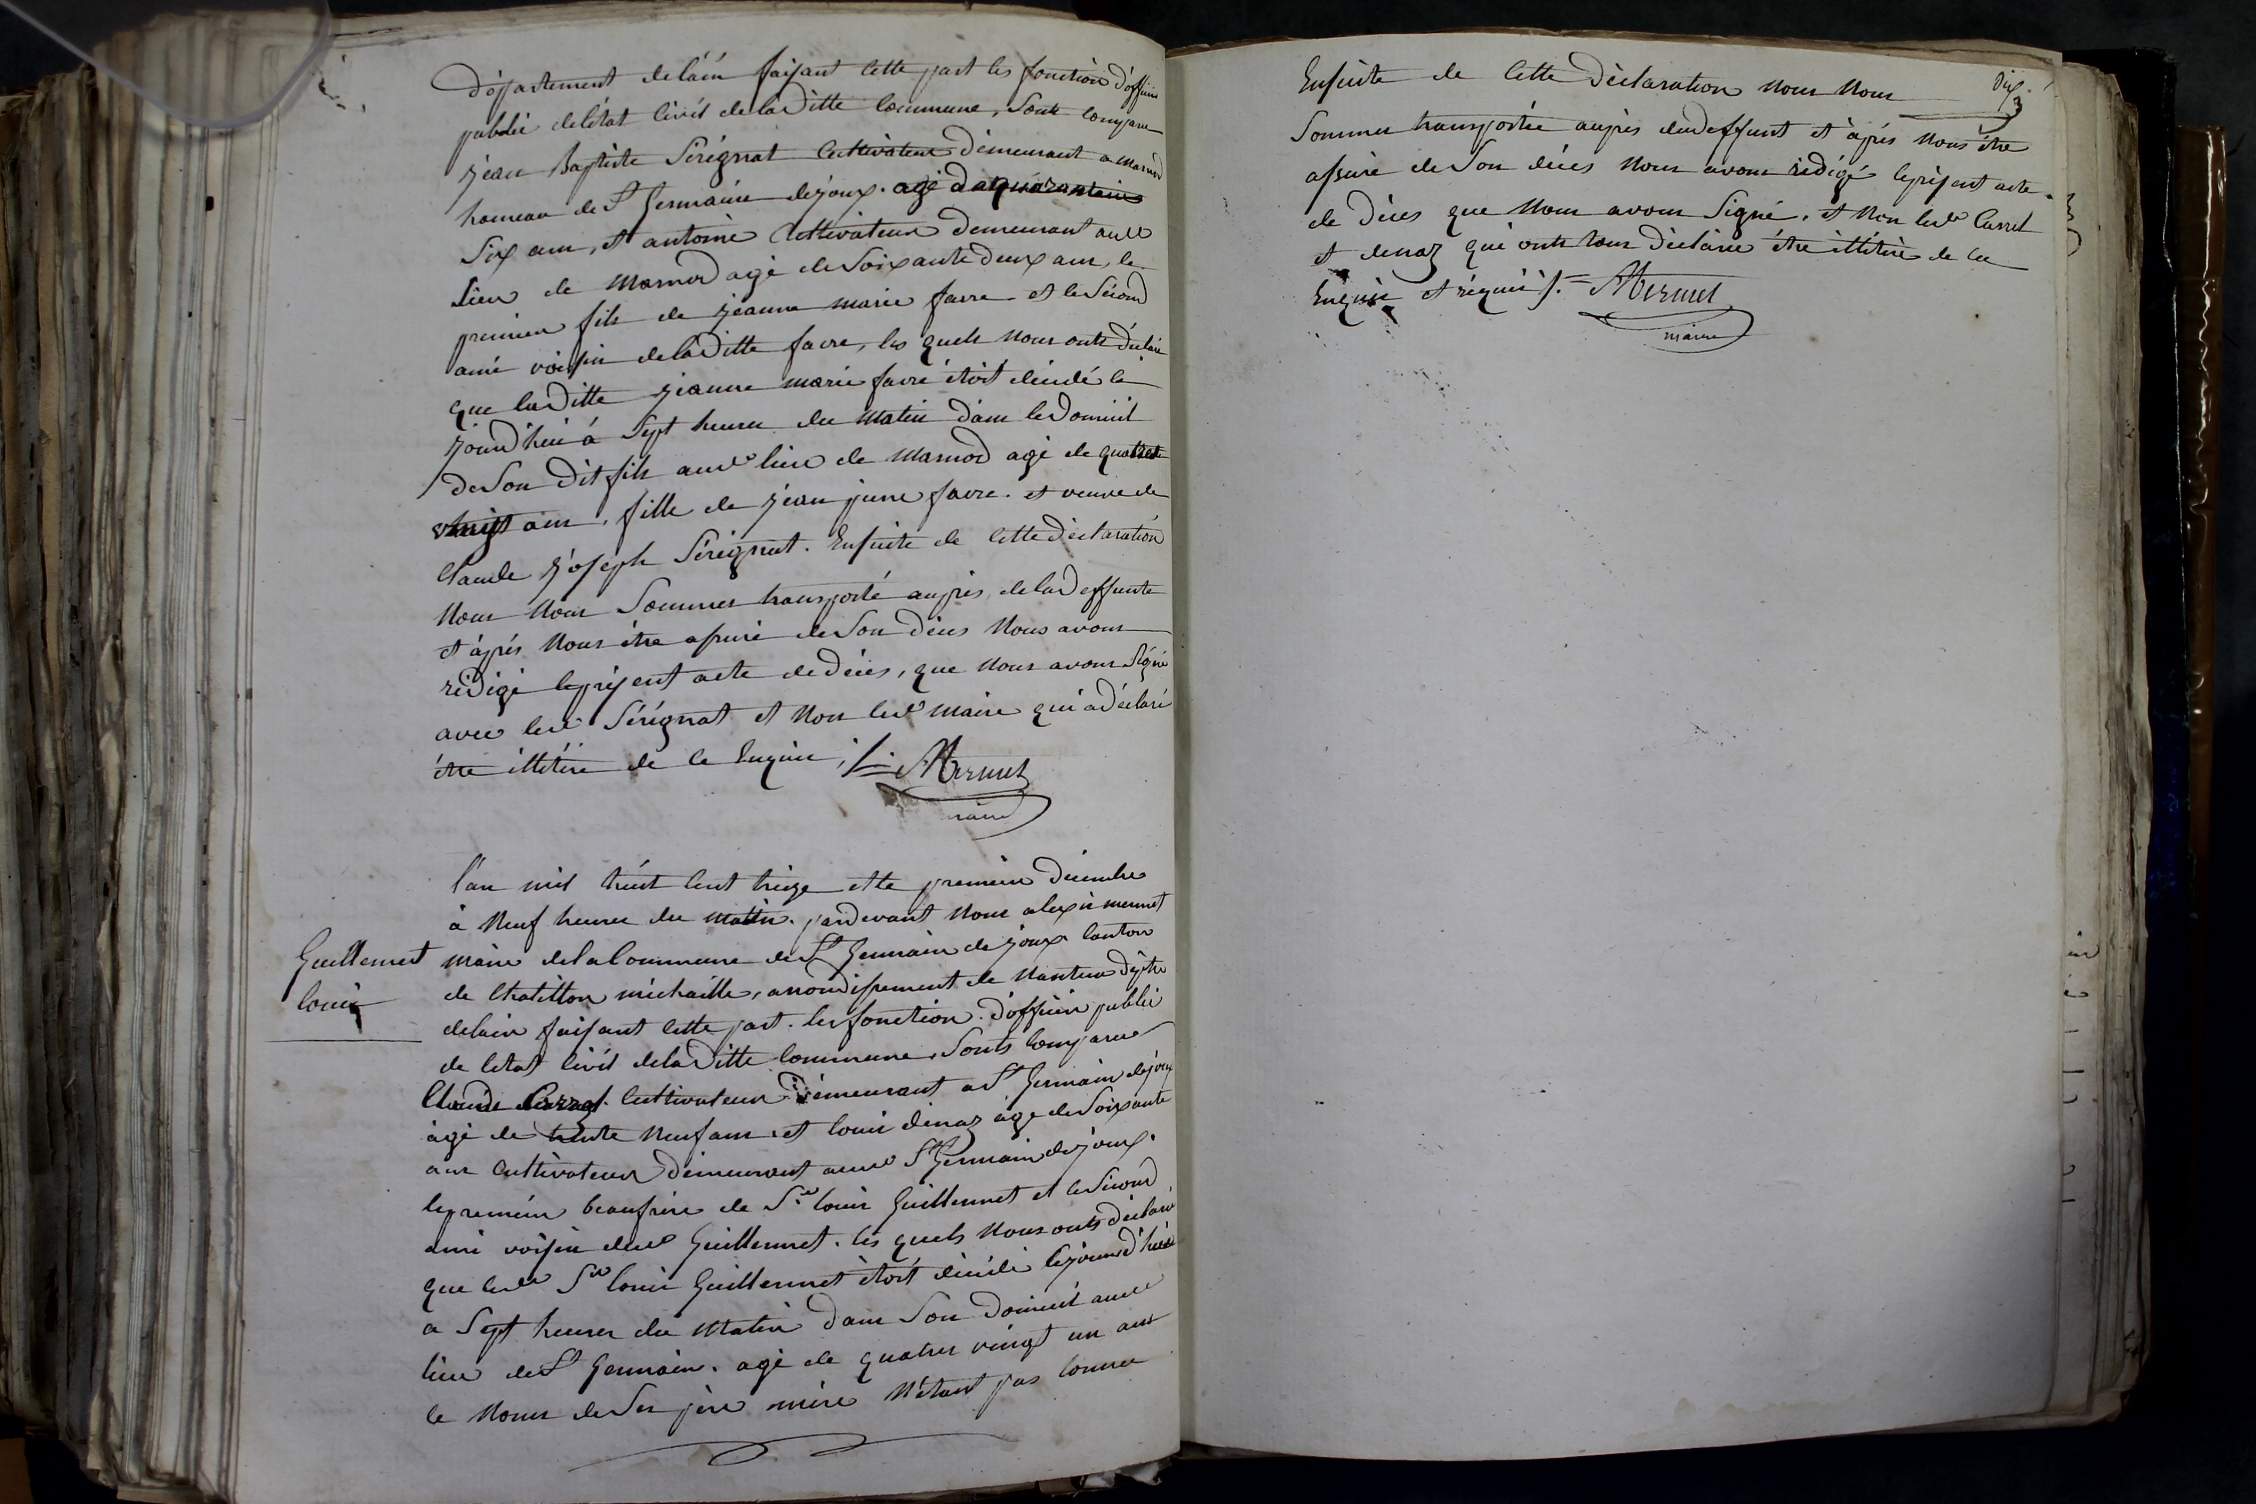 département de l'áin faisant cette part les fonction d'officier
public de l'état civil de la ditte commune, sont comparu
jean Baptiste Sérignat Cultivateur demeurant a marnod
hameau de St Germain de joux. agé de quarante
six ans, et antoine Cultivateur demeurant au dt
lieu de marnod agé de soixante deux ans, le
premier fils de jeanne marie favre et le second
ami voisin de la ditte favre, les quels nous onts déclaré
que la ditte jeanne marie favre étoit décédé le
jourd'hui á sept heures du matin dans le domicil
de son dit fils au dt lieu de marnod agé de quatre
vingt ans, fille de jean favre. et veuve de
Claude joseph Sérignat. Ensuite de cette déclaration
nous nous sommes transporté auprès de la deffunte
et áprés nous étre assuré de son décés nous avons
rédigé le présent acte de décés, que nous avons signé
avec le dt Sérignat et non le dt maire qui a déclaré
étre illétére de ce enquis ./. AMermet
maire
l'an mil huit cent treize et le premier décembre
á neuf heures du matin. pardevant nous alexis mermet
maire de la Commune de St Germain de joux canton
de Chatillon michaille, arrondissement de Nantua dépt
de lain faisant cette part. les fonction. d'officier public
de létat civil de la ditte commune, sonts comparu
Claude Carrel. Cultivateur demeurant a St Germain de joux
ágé de trente neuf ans. et louis dénaz áge de soixante
ans cultivateur demeurant au dt St Germain de joux.
le premier beaufrére de Sr louis Guillermet et le second
ami voisin du dt Guillermet. les quels nous onts déclaré
que le dt Sr louis Guillermet étoit décédé lejourd'hui
a sept heures du matin dans son domicil au dt
lieu de St Germain. agé de quatre vingt un ans
le noms de ses pére mére n'étant pas connu
Guillermet
louis
dix.
Ensuite de cette déclaration nous nous
sommes transportée auprès du deffunt et áprés nous étre
assuré de son décés nous avons rédigé le présent acte
de décés que nous avons signé, et non les dt Carrel
et denaz qui onts tous déclarée étre illétére de ce
Enquis et réquis ./. AMermet
maire